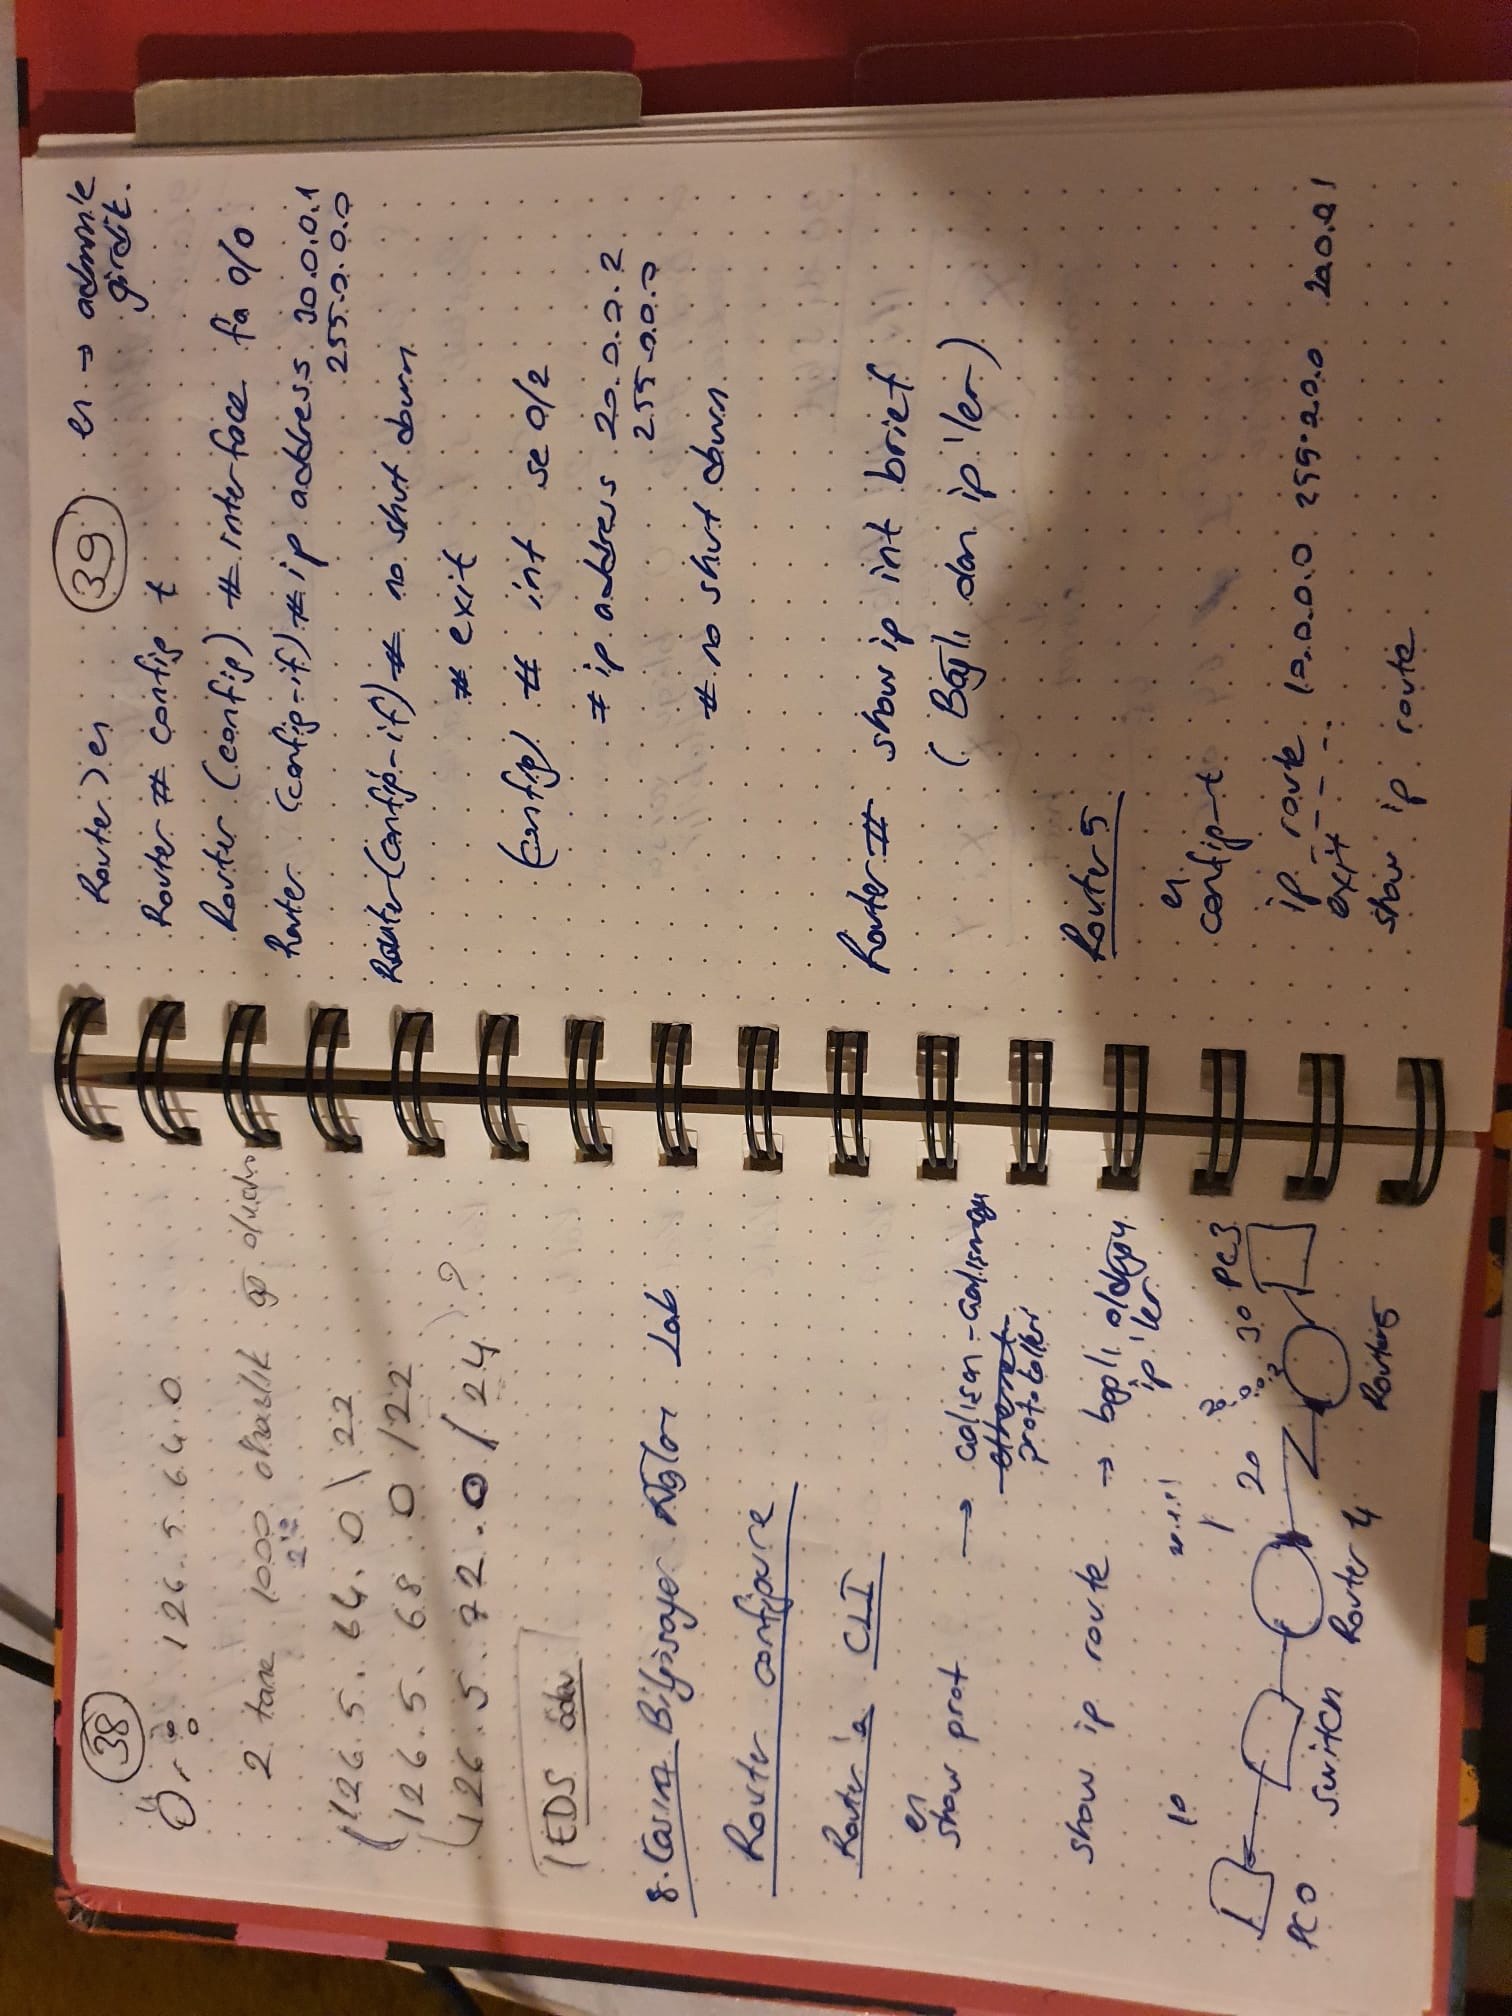 38
Ör: 126.5.64.0
2 tane 1000 ohaslık ağ
2^10
126.5.64.0 \ 22
126.5.68.0 /22
126.5.72.0 / 24 ) ?
EDS ödev
8.Kasım Bilgisayar Ağları Lab
Router configure
Router'a CLI
en
show prot → çalışan-çalışmayan
ethernet
protokolleri
show ip route → bağlı olduğu
ip'ler
10
20 20.0.0.2 30 PC3
PC0 Switch Router 4 Router5
39
Router > en
en → admin'e
girdik.
Router # config t
Router (config) # interface fa 0/0
Router (config-if) # ip address 30.0.0.1
255.0.0.0
Router (config-if) # no shut down
# exit
(config) # int se 0/2
# ip address 20.0.0.2
255.0.0.0
# no shut down
Router # show ip int brief
( Bağlı olan ip'ler )
Router 5
en
config-t
ip route 10.0.0.0 255.0.0.0 20.0.0.1
exit
show ip route